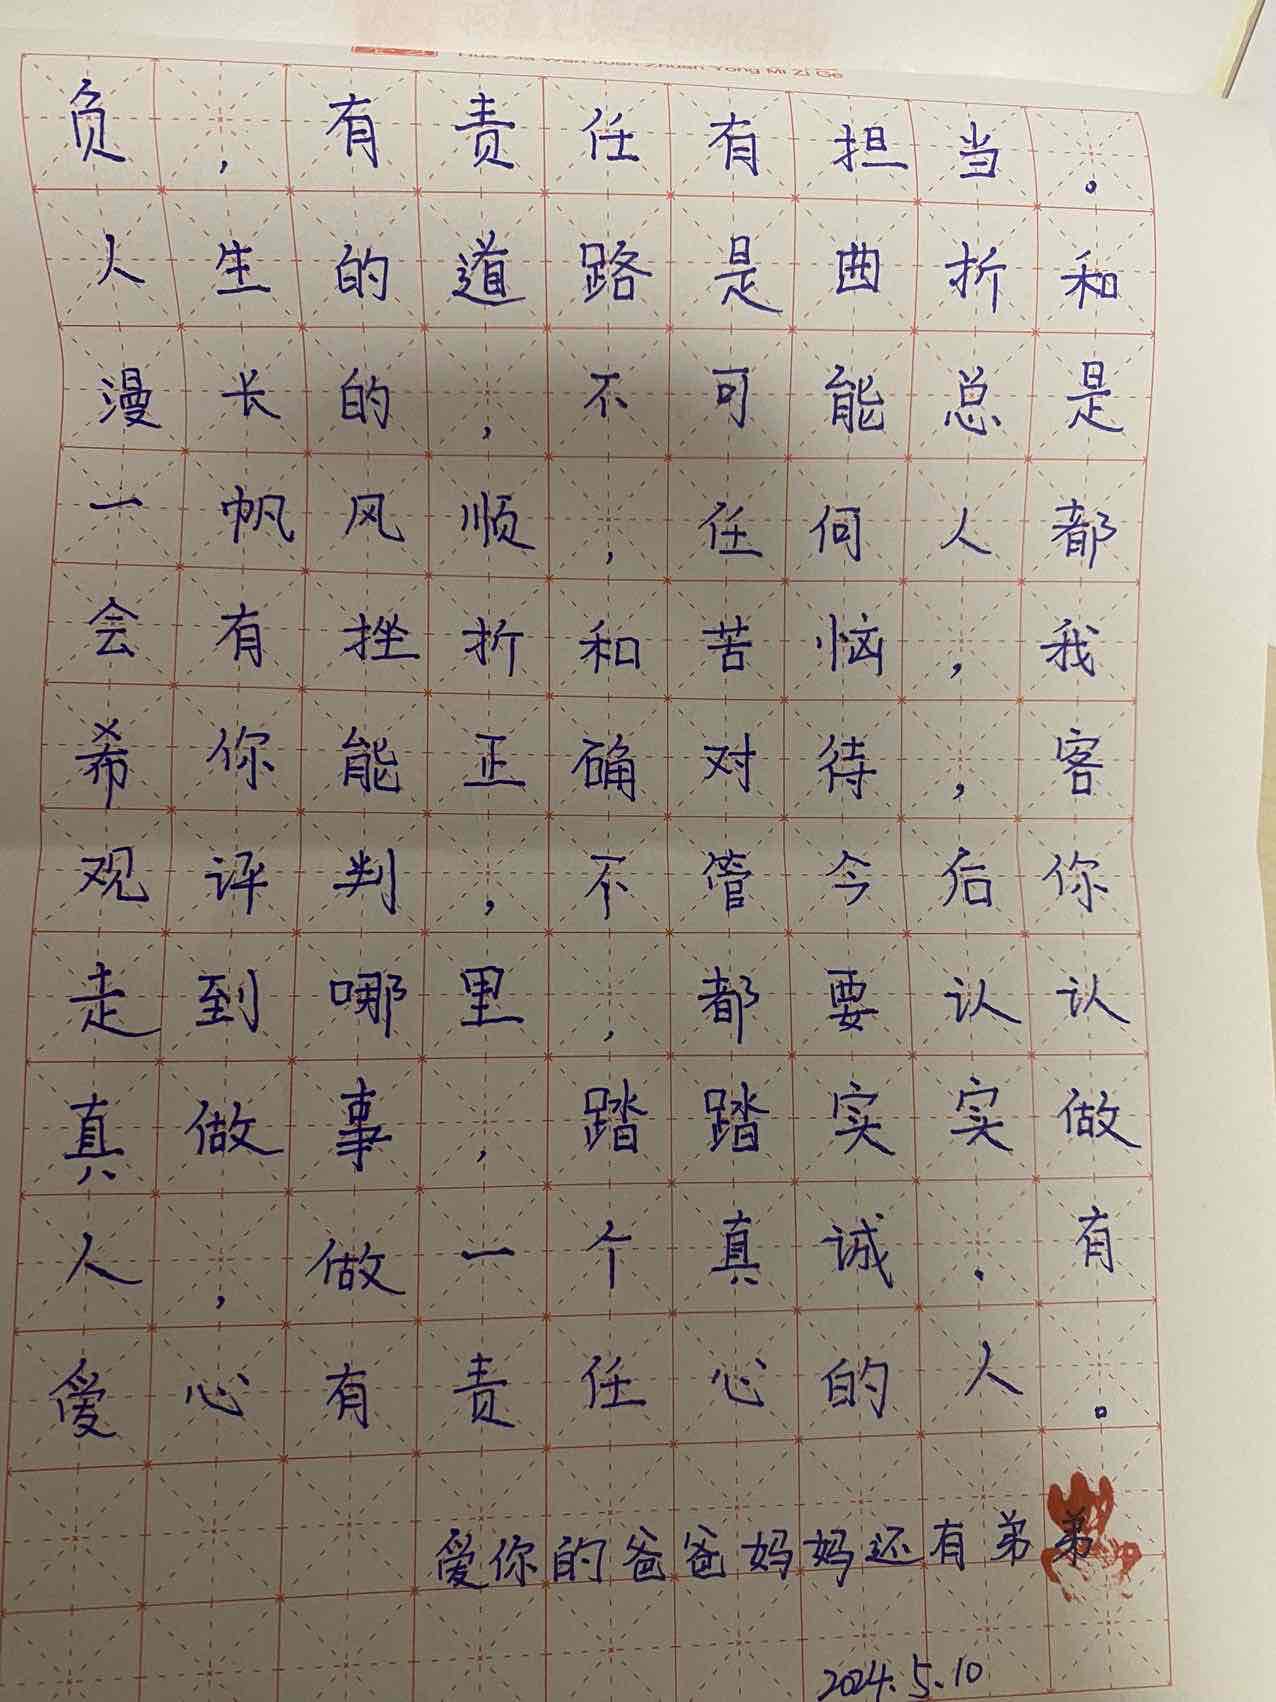 Hua Xia Wan Juan Zhuan Yong Mi Zi Ge
负，有责任有担当。
人生的道路是曲折和
漫长的，不可能总是
一帆风顺，任何人都
会有挫折和苦恼，我
希你能正确对待，客
观评判，不管今后你
走到哪里，都要认认
真做事，踏踏实实做
人，做一个真诚．有
爱心有责任心的人。
爱你的爸爸妈妈还有弟弟
2024.5.10